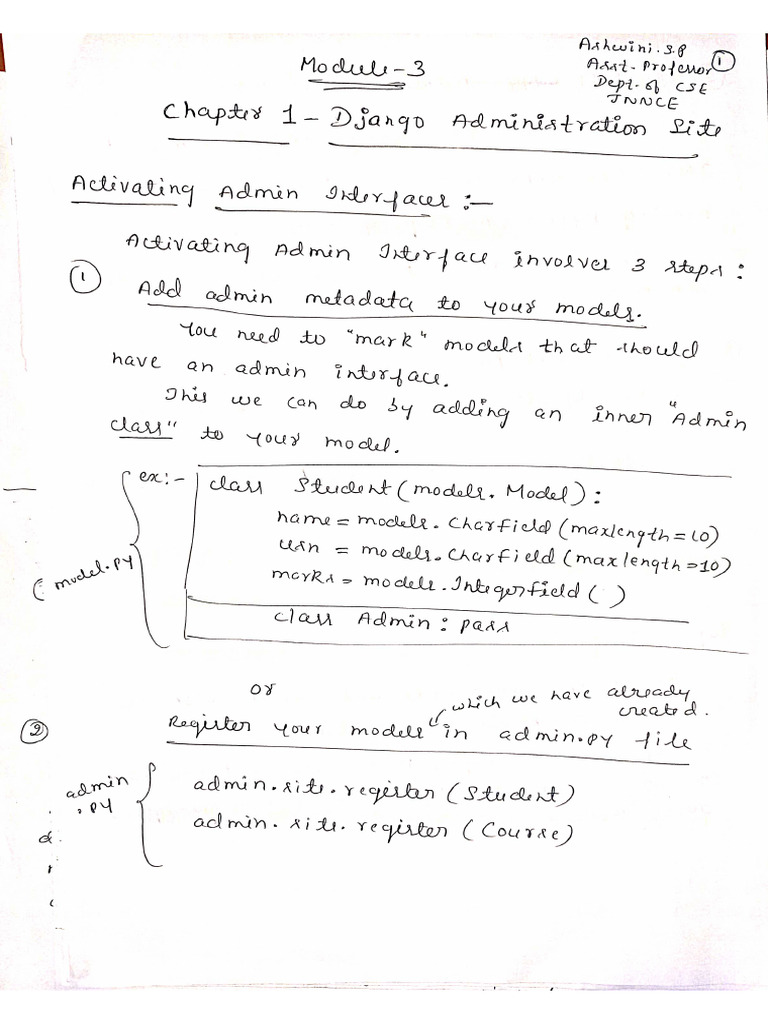 Ashwini.S.P
Asst. Professor
Dept. of CSE
JNNCE
1
Module-3
Chapter 1 - Django Administration Site
Activating Admin Interfaces :-
Activating Admin Interface involves 3 steps :
1 Add admin metadata to your models.
You need to "mark" models that should
have an admin interface.
This we can do by adding an inner "Admin
class" to your model.
ex:- class Student(models.Model):
name = models.CharField(maxlength=10)
usn = models.CharField(maxlength=10)
marks = models.IntegerField()
class Admin: pass
(model.py
or
which we have already
created.
2 Register your models in admin.py file
admin
.py
admin.site.register(Student)
admin.site.register(Course)